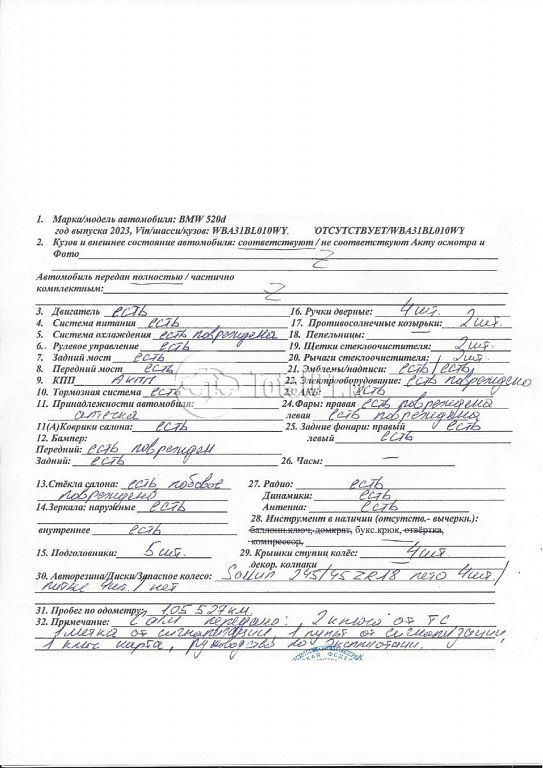 1. Марка/модель автомобиля: BMW 520d
год выпуска 2023, Vin/шасси/кузов: WBA31BL010WY. ОТСУТСТВУЕТ/WBA31BL010WY
2. Кузов и внешнее состояние автомобиля: соответствуют / не соответствуют Акту осмотра и
Фото
Автомобиль передан полностью / частично
комплектным: Z
3. Двигатель есть
4. Система питания есть
5. Система охлаждения есть повреждена
6. Рулевое управление есть
7. Задний мост есть
8. Передний мост есть
9. КПП АКПП
10. Тормозная система есть
11. Принадлежности автомобиля:
аптечка
11(А)Коврики салона: есть
12. Бампер:
Передний: есть поврежден
Задний: есть
16. Ручки дверные: 4 шт.
17. Противосолнечные козырьки: 2 шт.
18. Пепельницы: —
19. Щетки стеклоочистителя: 2 шт.
20. Рычаги стеклоочистителя: 2 шт.
21. Эмблемы/надписи: есть/есть
22. Электрооборудование: есть повреждено
23. АКБ: есть
24.Фары: правая есть повреждена
левая есть повреждена
25. Задние фонари: правый есть
левый есть
26. Часы: —
13.Стёкла салона: есть лобовое
повреждено
14.Зеркала: наружные есть
внутреннее есть
15. Подголовники: 5 шт.
27. Радио: есть
Динамики: есть
Антенна: есть
28. Инструмент в наличии (отсутств.- вычеркн.):
баллонн.ключ, домкрат, букс.крюк, отвёртка,
компрессор,
29. Крышки ступиц колёс: 4 шт.
.декор. колпаки
30. Авторезина/Диски/Запасное колесо: Sailun 245/45 ZR18 лето 4 шт/
литые 4 шт. / нет
31. Пробег по одометру: 105 527 км.
32. Примечание: передано: 2 ключа от ТС
1 метка от сигнализации, 1 пульт от сигнализации,
1 ключ карта, руководство по эксплуатации.